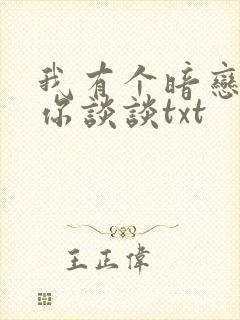 我有个暗戀
你談談txt
王正偉